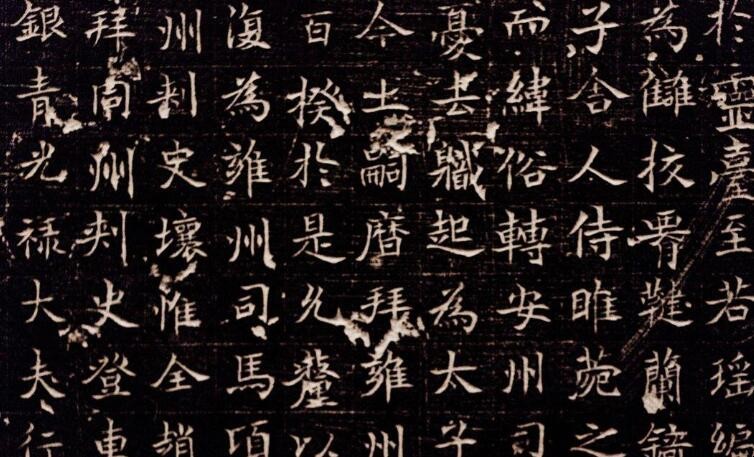 於靈臺至若瑶編
為讎挍鞬蘭錡
子舍人侍睢菀之
而緯俗轉安州司
憂去職起為太子
今上嗣曆拜雍州
百揆於是允釐以
復為雍州司馬頃
州刺史壤惟全趙
拜同州刺史登車
銀青光禄大夫行